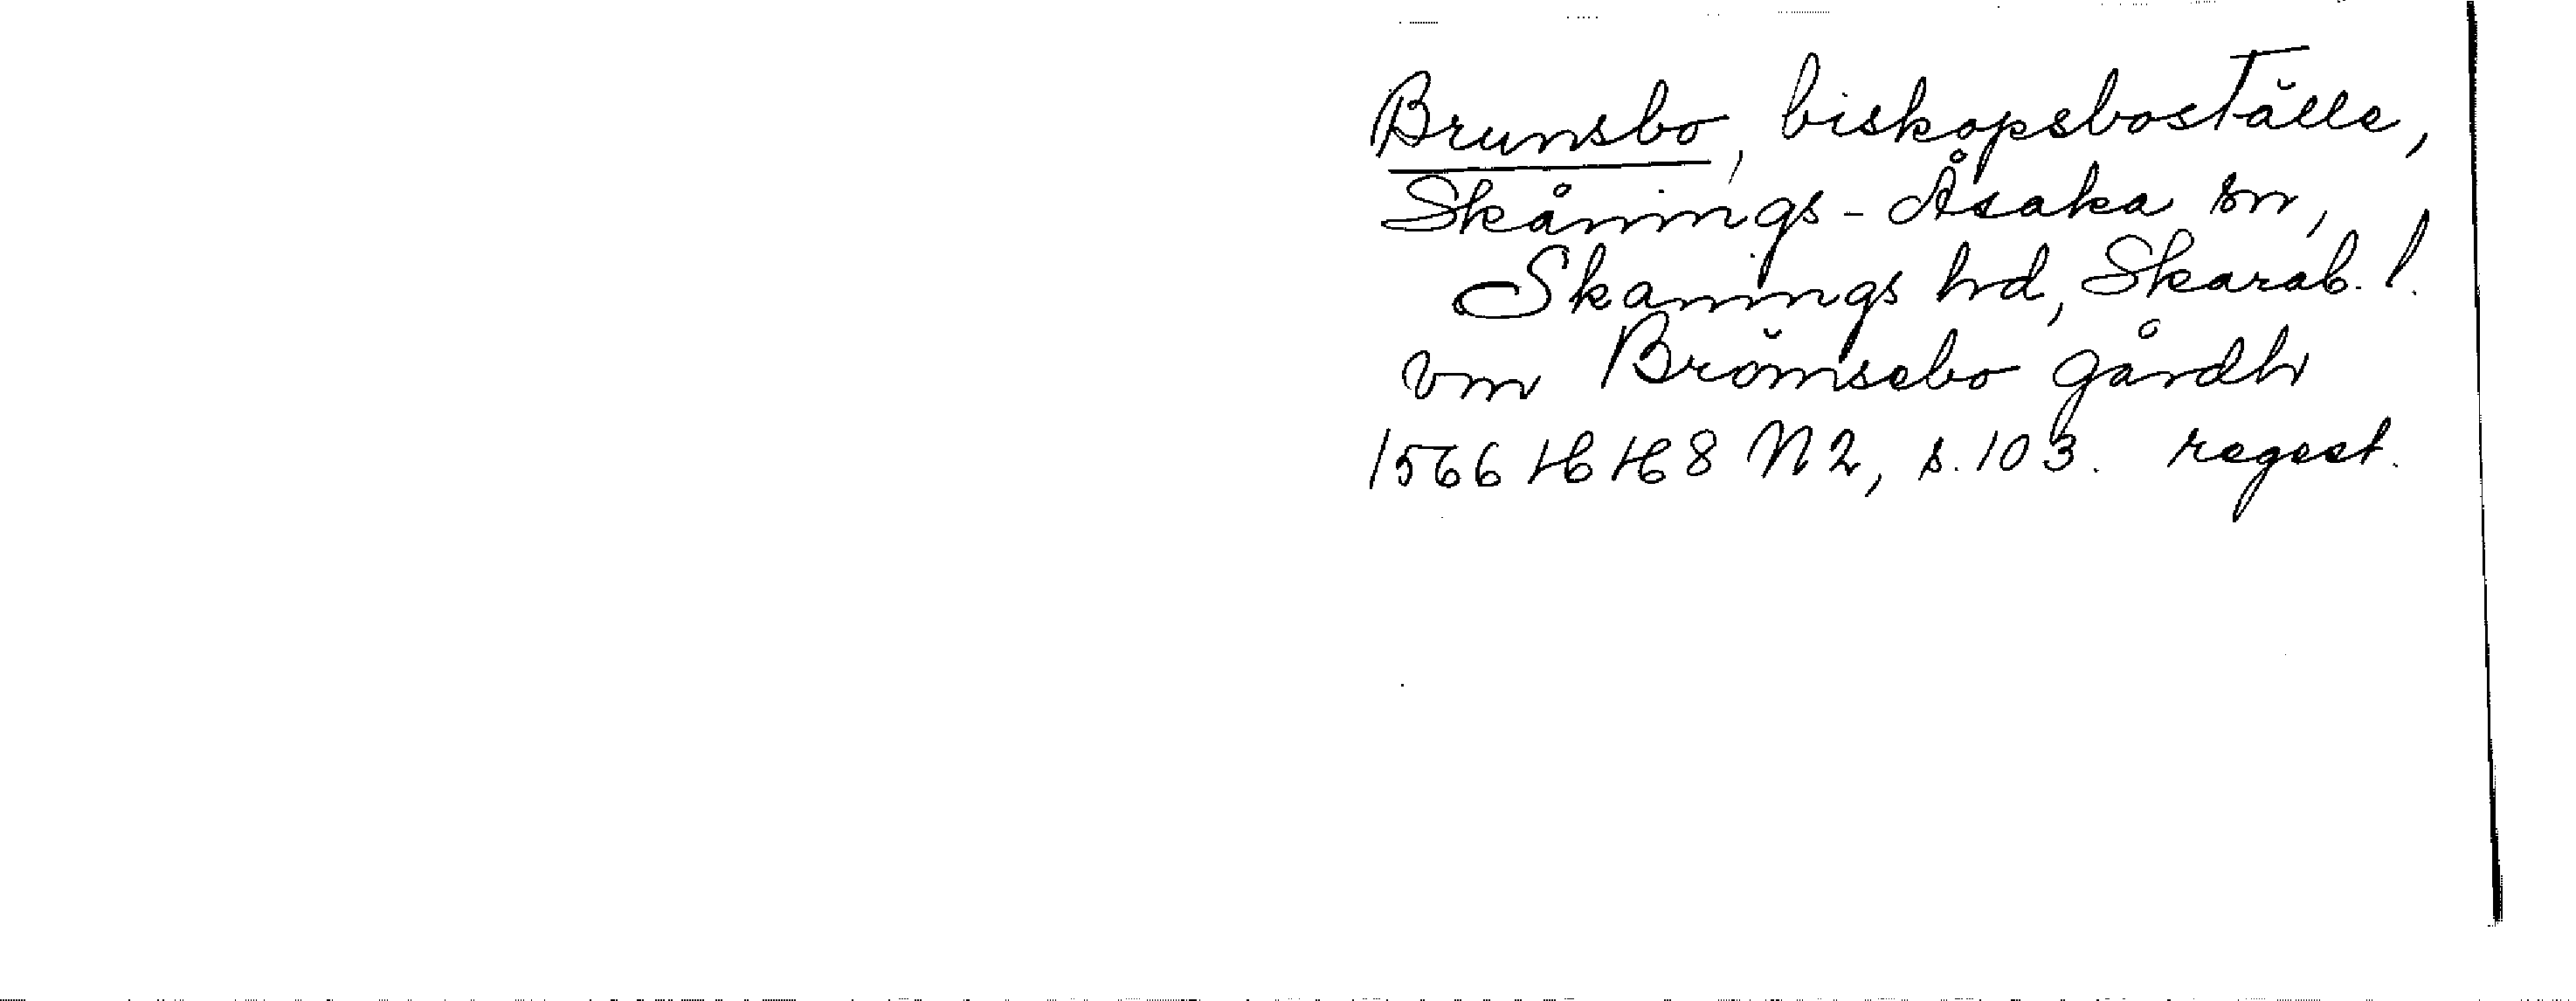 Brunsbo, biskopsboställe,
Skånings-Åsaka sn,
Skanings hd, Skarab. l.
vm Brömsebo gårdh
1566 HH 8 N 2, s. 103. regest.